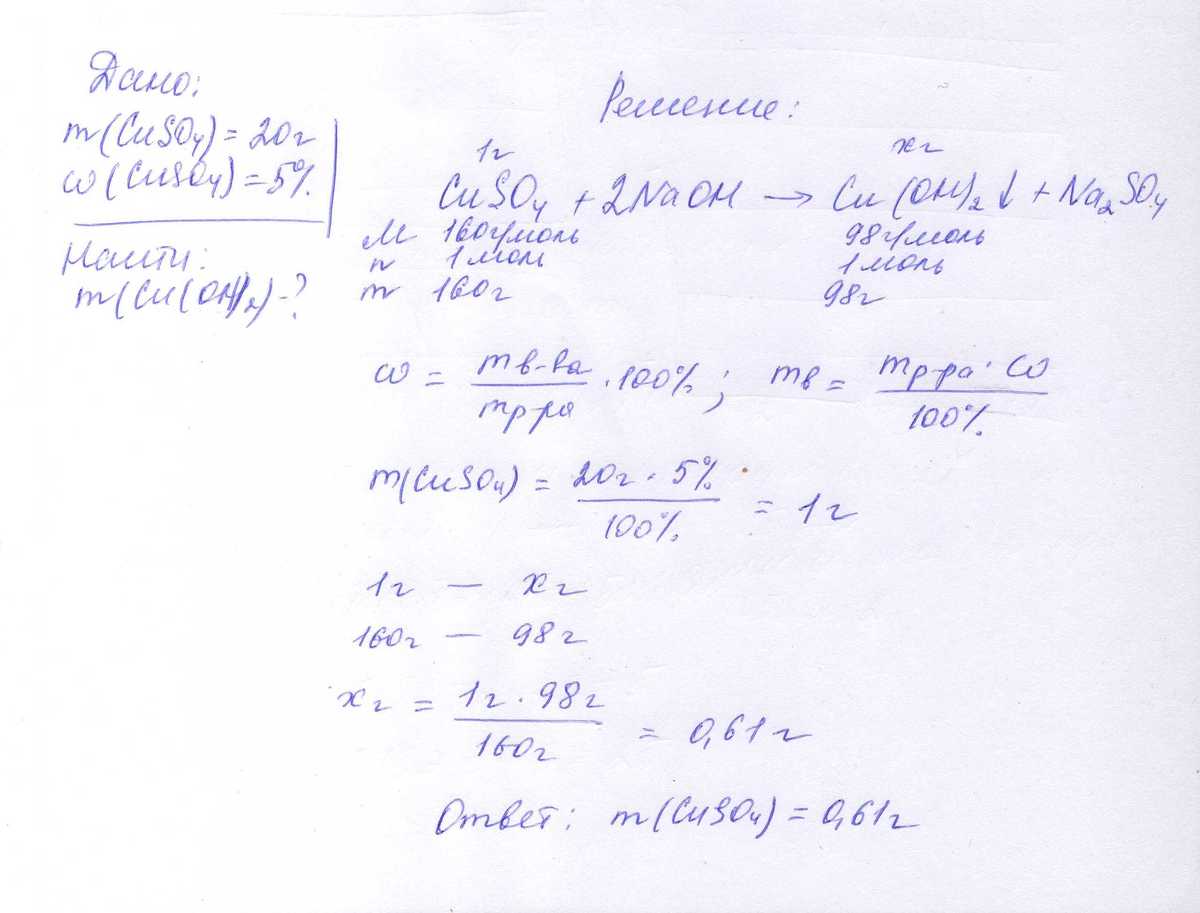 Дано:
m(CuSO₄) = 20г
ω(CuSO₄) = 5%
Найти:
m(Cu(OH)₂) - ?
Решение:
1г xг
CuSO₄ + 2NaOH → Cu(OH)₂↓ + Na₂SO₄
M 160г/моль 98г/моль
n 1моль 1моль
m 160г 98г
ω = mв-ва / mр-ра · 100%; mв = mр-ра · ω / 100%
m(CuSO₄) = 20г · 5% / 100% = 1г
1г — xг
160г — 98г
xг = 1г · 98г / 160г = 0,61г
Ответ: m(CuSO₄) = 0,61г